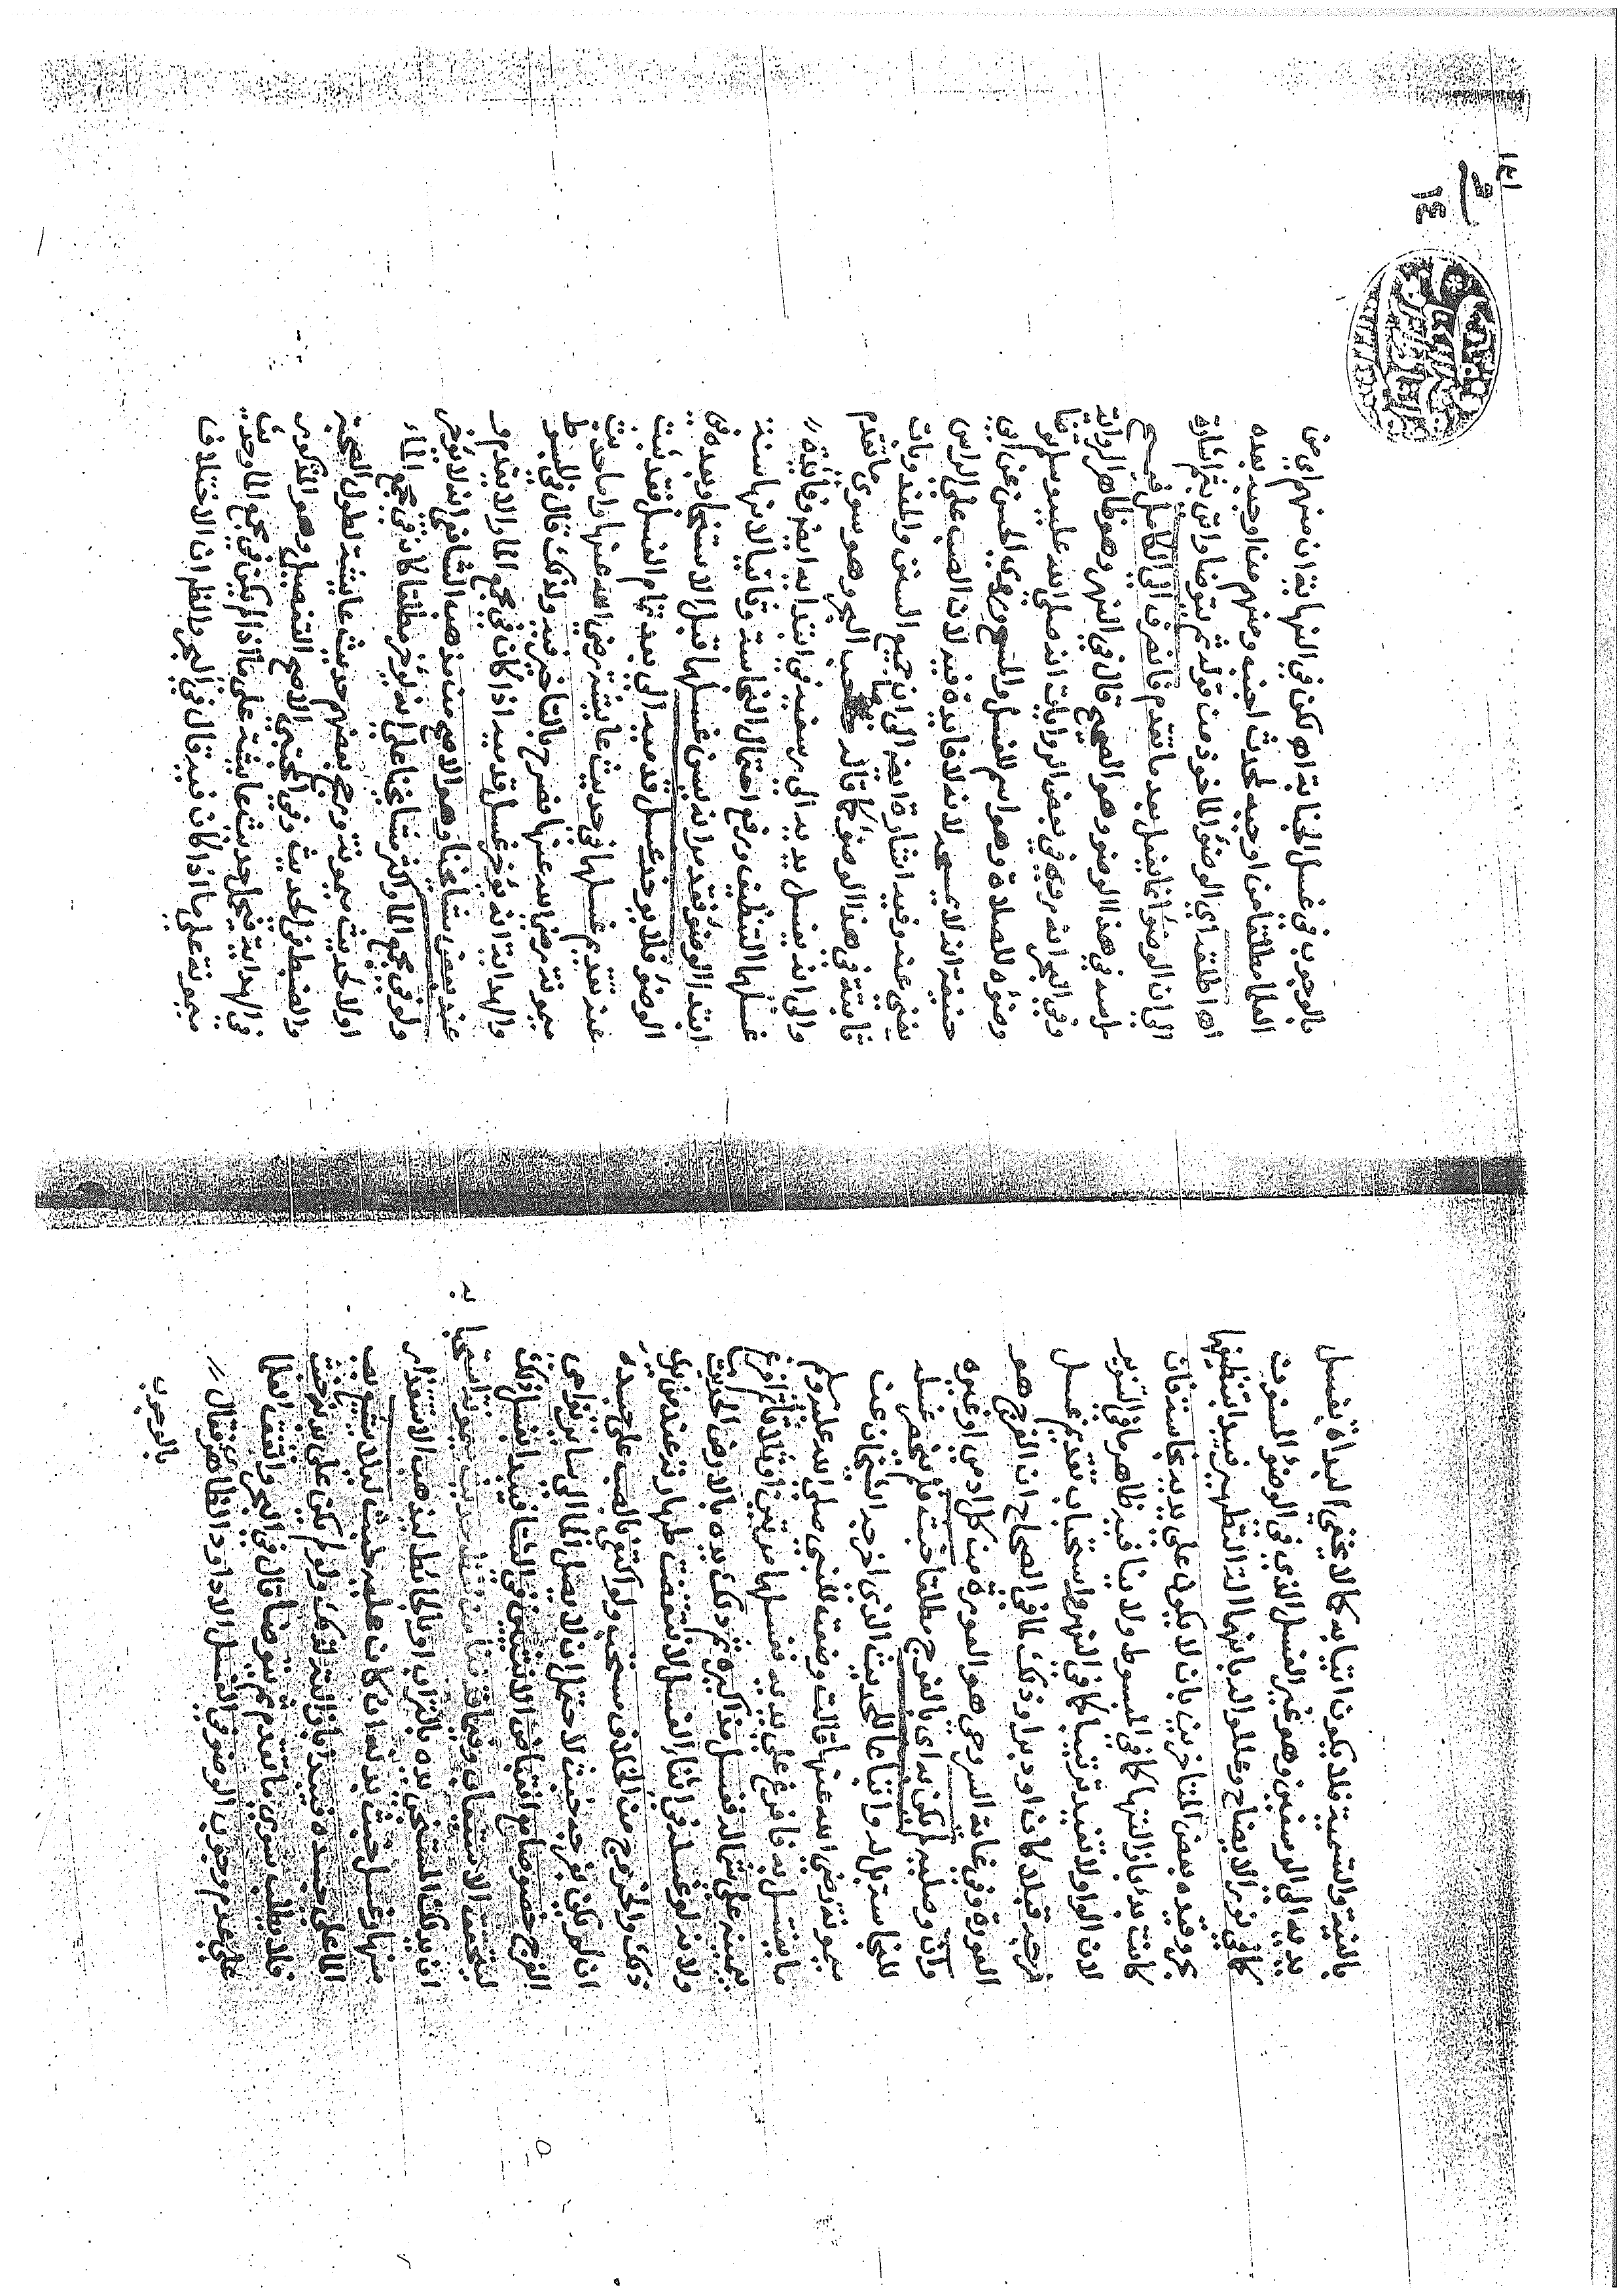 بالنية والتسمية فلا يكون اتيا به كما لا يخفى البداة بغسل
يديه الى الرسغين وهو غير الغسل الذي في الوضوء المسنون
كما في نور الايضاح وعللوا له بانها الة التطهير فيبدا بتنظيفها
بحر وقيده بعض المتاخرين بان لا يكون على بدنه نجاسة فان
كانت بدئ بازالتها كما في المبسوط ولا ينافيه ظاهر ما في التنوير
لان الواو لا تفيد ترتيبا كما في النهر واستحباب تقديم غسل
فرجه قبلا كان او دبرا وذكر لما في الصحاح ان الفرج هو
العورة وفي غاية السروجي هو العورة من كل ادمي او غيره
وان وصلية لم يكن به اي بالفرج مطلقا خبث فلم يختص غسله
للنجاسة بل له واتباعا للحديث الذي اخرجه الشيخان عن
ميمونة رضي الله عنها قالت وضعت للنبي صلى الله عليه وسلم
ما يغتسل به فافرغ على يديه فغسلهما مرتين او ثلاثا ثم افرغ
بيمينه على شماله فغسل مذاكيره ثم دلك يده بالارض الحديث
ولانه لو غسله في اثناء الغسل لانتقضت طهارته عند من يرى
ذلك والخروج من الخلاف مستحب ولو اكتفى بالصب على جسده
ان لم يكن بفرجه خبث لاحتمل ان لا يصل الماء الى ما توارى
الفرج خصوصا مع انقباض الانثيين في الشتا فيبدا بغسله وذلك
ليتحقق الاستيقان
ان يدلك المستنجي يده بالتراب او بالحائط ليذهب الاستقذار
منها وغسل خبث بدنه ان كان عليه خبث ليلا يشيع بصب
الما على جسده فينبذ فان انتشر لذلك ولو لم يكن على بدنه خبث
فلا يطلب سوى ما تقدم ثم يتوضا قال في البحر واتفق العلما
على عدم وجوب الوضوء في الغسل الا داود الظاهري فقال
بالوجوب
١٤١
بالوجوب في غسل الجنابة اه لكن في النهاية ان منهم اي من
العلما مطلقا من اوجبه لحدث اجنب ومنهم من اوجبه بعده
اه اطلقه اي الوضوء الماخوذ من قوله ثم يتوضا واتى بثم اشارة
الى ان الوضوء انما يفعل بعد ما تقدم فانصرف الى الكامل فيمسح
راسه في هذا الوضوء وهو الصحيح قال في النهر وهو ظاهر الرواية
وفي البحر انه روي في بعض الروايات انه صلى الله عليه وسلم توضا
وضوءه للصلاة وهو اسم للغسل والمسح وروى الحسن عن ابي
حنيفة انه لا يمسح لانه لا فايدة فيه لان الصب على الراس
يغني عنه وفيه اشارة ايضا الى ان جميع السنن والمندوبات
ثابتة في هذا الوضوء كما قاله صاحب البحر وهو سوى ما تقدم
والى انه يغسل يديه الى رسغيه في ابتدائه ايضا وفائدته
غسلها التنظيف ورفع احتمال النجاسة وثانيا لانها سنة
ابتدا الوضوء وقدمر انه يسن غسلها قبل الاستنجا وبعده في
الوضوء فلا يوخر غسل قدميه الى بعد تمام الغسل فقد ثبت
عنه تقديم غسلهما في حديث عايشة رضي الله عنها واما حديث
ميمونة رضي الله عنها فصرح بالتاخير فيه ولذلك قال في المبسوط
والهداية انه يوخر غسل قدميه اذا كان في مجمع الما والا يقدم و
عند بعض مشايخنا وهو الاصح من مذهب الشافعي انه لا يوخر
ولو في مجمع الما واكثر مشايخنا على انه يوخر مطلقا كان في مجمع الماء
اولا لحديث ميمونة ورجح بعضهم حديث عايشة لطول الصحبة
والضبط في الحديث وفي المجتبى الاصح التفصيل وهو المذكور
في الهداية فيحمل حديث عايشة على ما اذا لم يكن في مجمع الما وحديث
ميمونة على ما اذا كان فيه قال في البحر والظاهر ان الاختلاف